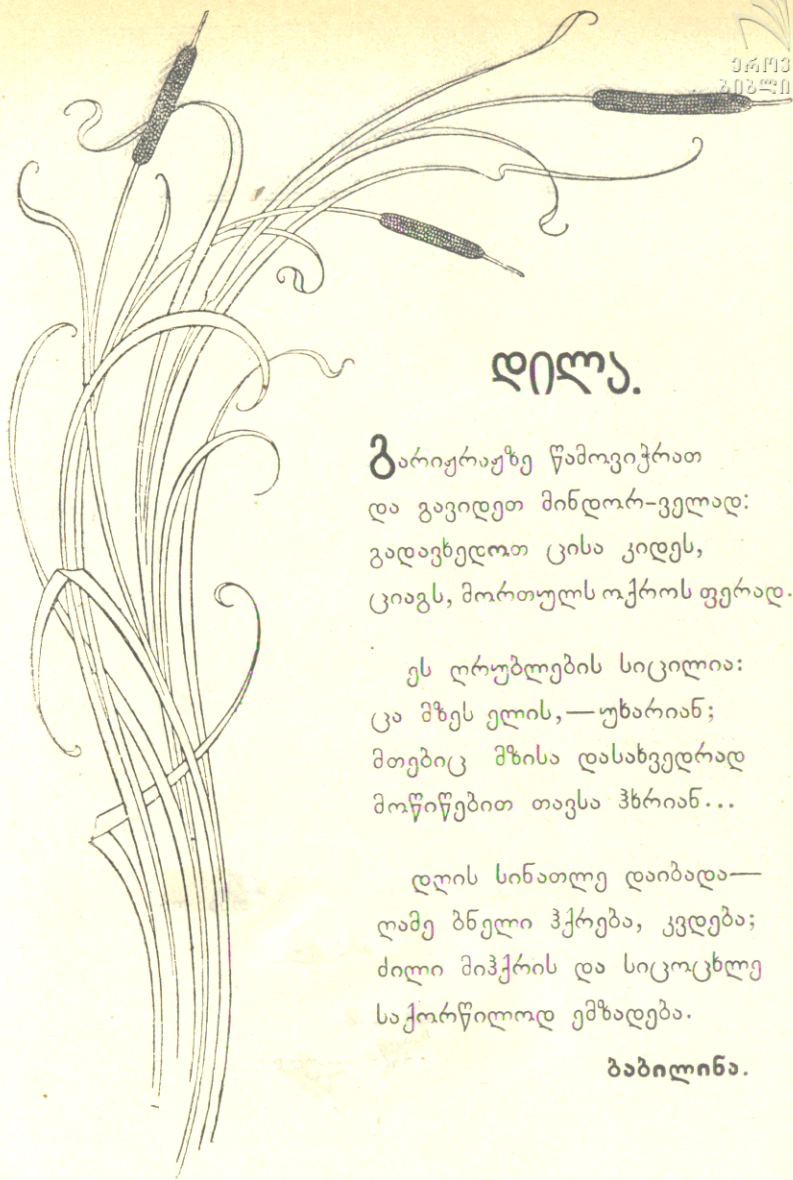 ეროვ
ბიბლი
დილა.
გარიჟრაჟზე წამოვიჭრათ
და გავიდეთ მინდორ-ველად:
გადავხედოთ ცისა კიდეს,
ციაგს, მორთულს ოქროს ფერად.
ეს ღრუბლების სიცილია:
ცა მზეს ელის,—უხარიან;
მთებიც მზისა დასახვედრად
მოწიწებით თავსა ჰხრიან...
დღის სინათლე დაიბადა—
ღამე ბნელი ჰქრება, კვდება;
ძილი მიჰქრის და სიცოცხლე
საქორწილოდ ემზადება.
ბაბილინა.